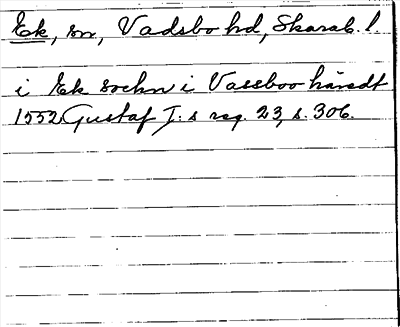 Ek, sn, Vadsbo hd, Skarab. l.
i Ek sochn i Vassboo häradt
1552 Gustaf I.s reg. 23, s. 306.